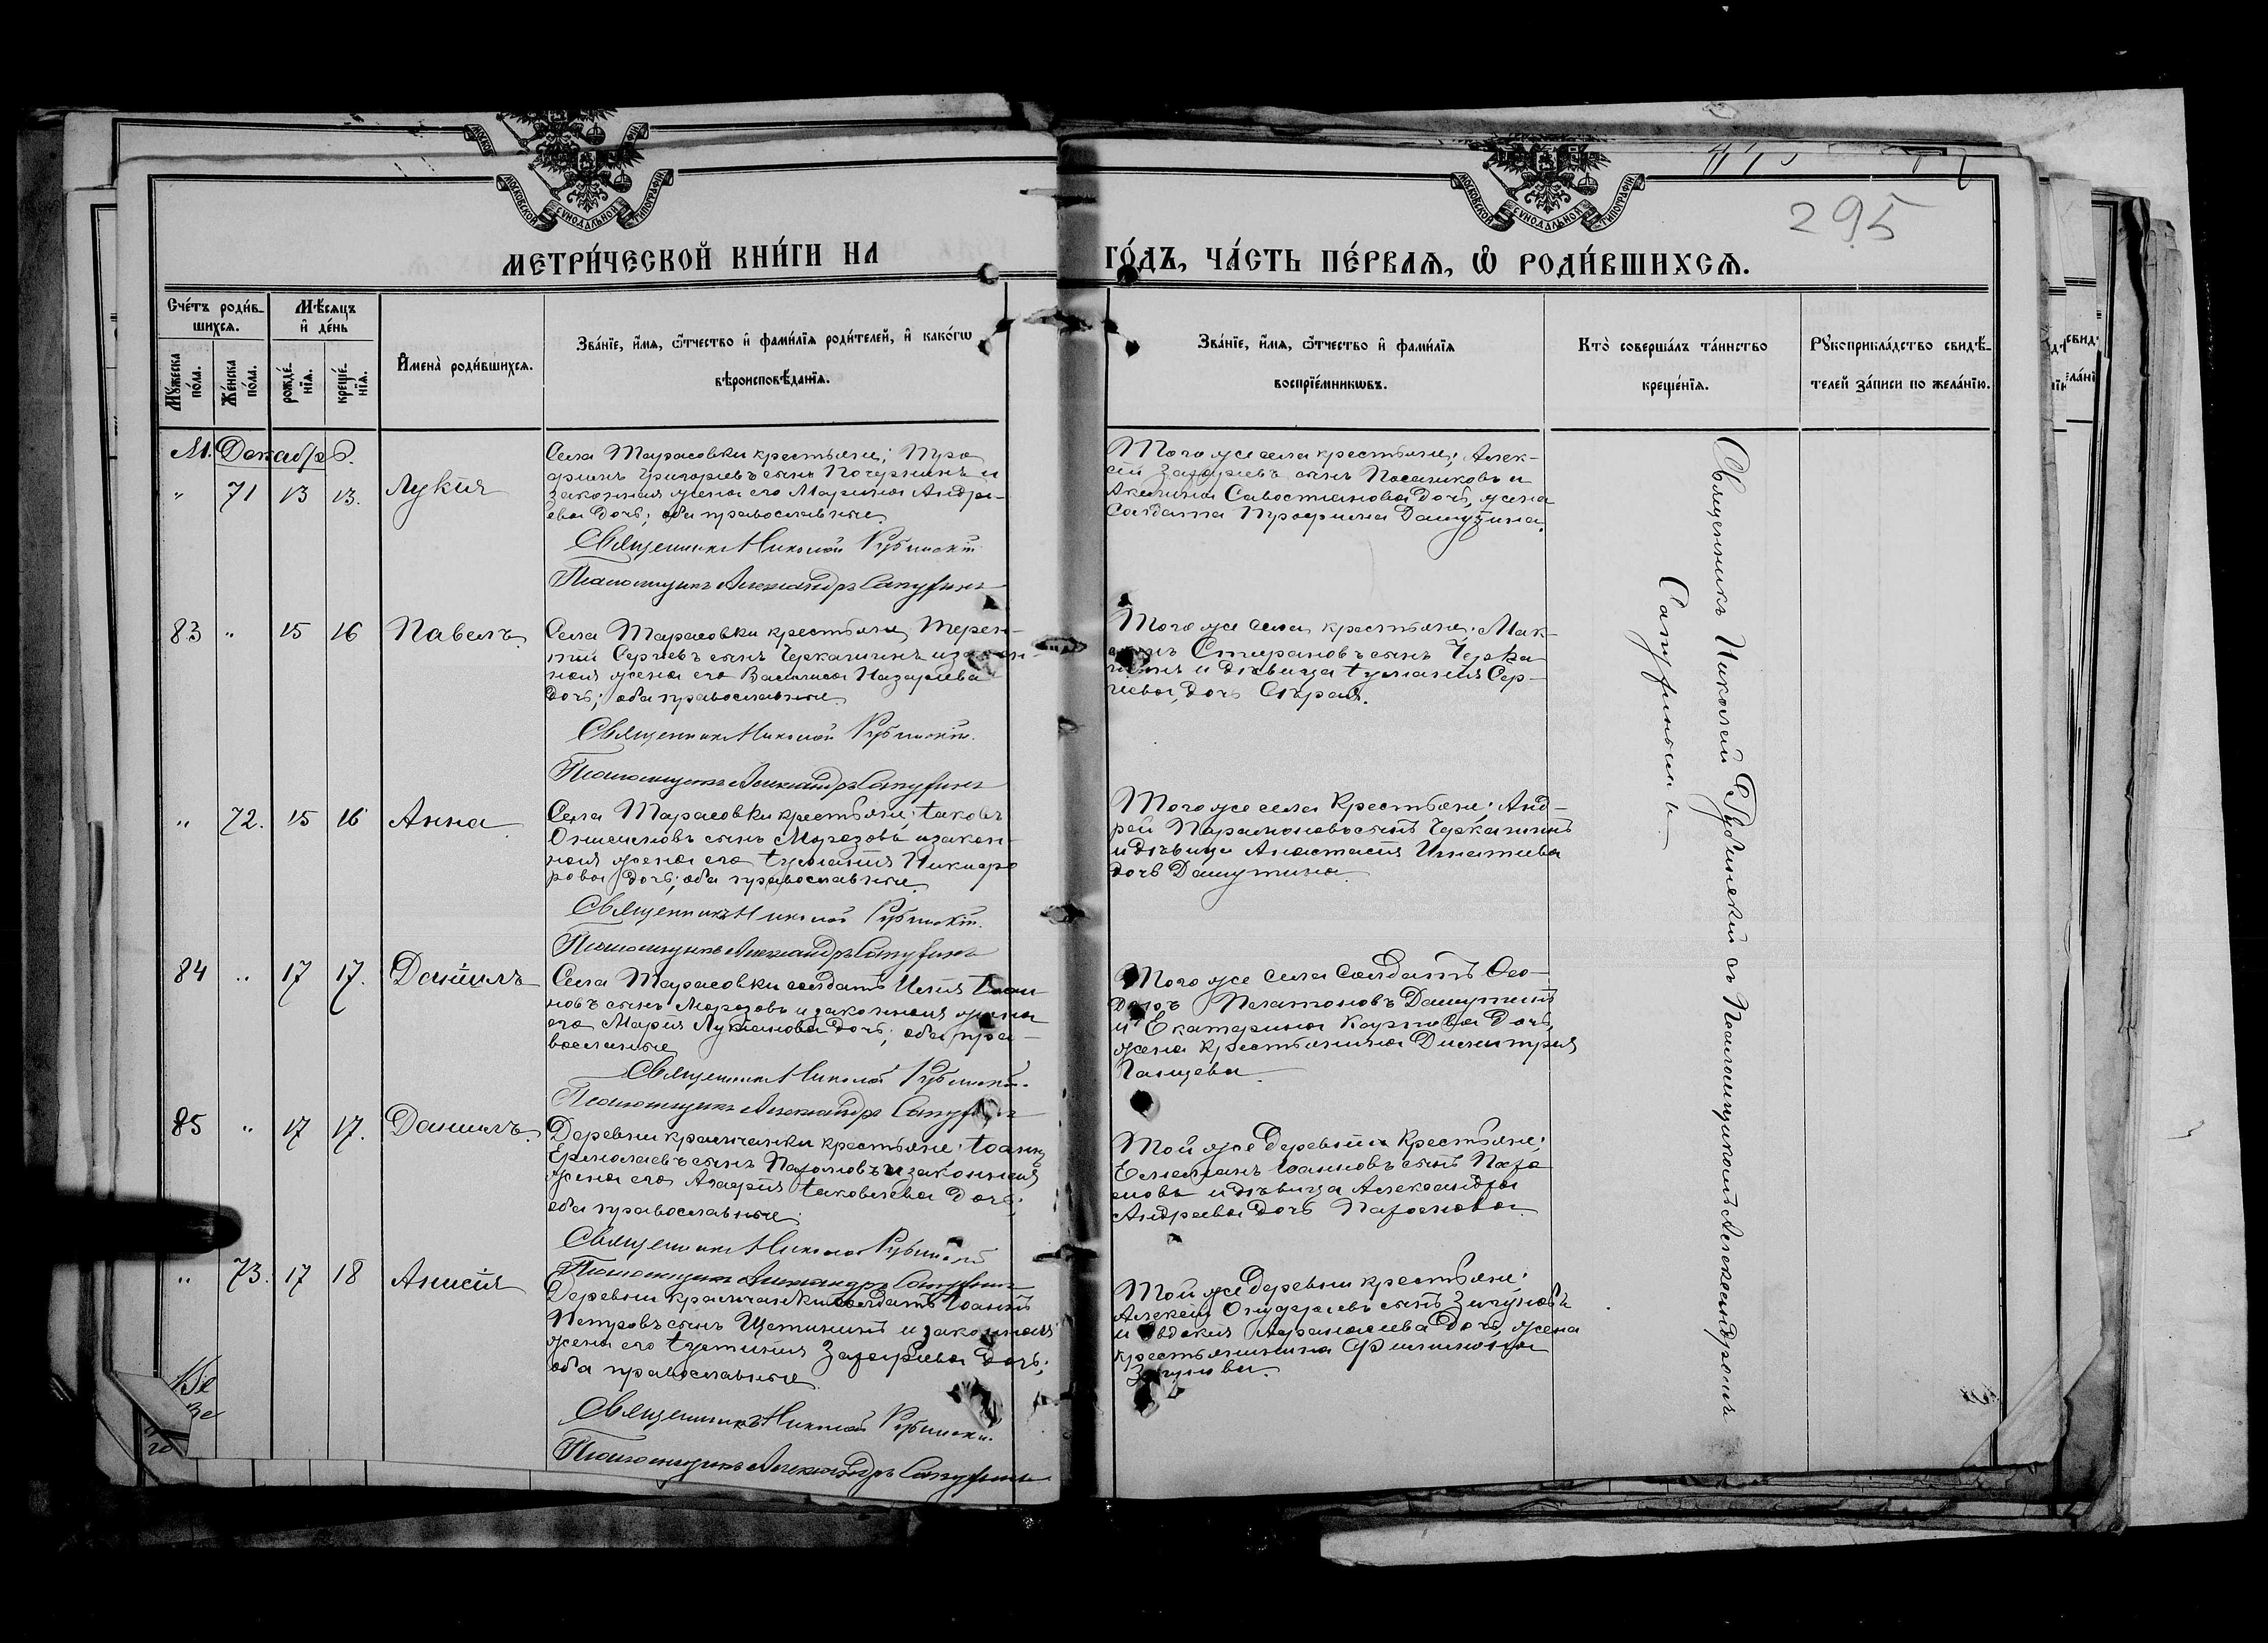 МОСКОВСКОЙ СУНОДАЛЬНОЙ ТИПОГРАФІИ
МОСКОВСКОЙ СУНОДАЛЬНОЙ ТИПОГРАФІИ
295
МЕТРИ́ЧЕСКОЙ КНИ́ГИ НА
ГО́ДЪ, ЧА́СТЬ ПЕ́РВАЯ, Ѡ РОДИ́ВШИХСЯ.
Сче́тъ роди́в-
шихся.
Мѣ́сяцъ
и де́нь
Му́жеска
по́ла.
Же́нска
по́ла.
рожде́-
нїя.
креще́-
нїя.
Имена̀ роди́вшихся.
Зва́нїе, и́мя, ѻ҆́тчество и фами́лїя роди́телей, и како́гѡ
вѣроисповѣ́данїя.
Зва́нїе, и́мя, ѻ҆́тчество и фами́лїя
воспрїе́мникѡвъ.
Кто̀ соверша́лъ та́инство
креще́нїя.
Рукоприкла́дство свидѣ́-
телей за́писи по жела́нїю.
М. Декабрь.
" 71 13 13. Лукія
Села Тарасовки крестьяне; Тро-
фимъ Григорьевъ сынъ и
законная жена его Марина Андре-
ева дочь; оба православные.
Священникъ Николай Рубинскій
Псаломщикъ Александръ Сапухинъ
Того же села крестьяне; Алек-
сѣй Захарьевъ сынъ и
Акилина Савостианова дочь, жена
солдата Трофима Дашутина.
83 " 15 16 Павелъ
Села Тарасовки крестьяне, Терен-
тій Сергіевъ сынъ Черкашинъ и закон-
ная жена его Василиса Назарьева
дочь; оба православные.
Священникъ Николай Рубинскій.
Псаломщикъ Александръ Сапухинъ
Того же села крестьяне; Мак-
симъ Стефановъ сынъ Черка-
шинъ и дѣвица Іуліанія Сер-
гіева дочь Сѣрая.
" 72. 15 16 Анна
Села Тарасовки крестьяне; Іаковъ
Онисимовъ сынъ Морозовъ и закон-
ная жена его Іуліанія Никифо-
рова дочь; оба православные.
Священникъ Николай Рубинскій.
Псаломщикъ Александръ Сапухинъ
Того же села крестьяне; Анд-
рей Парамоновъ сынъ Черкашинъ
и дѣвица Анастасія Игнатіева
дочь Дашутина.
84 " 17 17. Даніилъ
Села Тарасовки солдатъ Илія Іоан-
новъ сынъ Морозовъ и законная жена
его Марія Лукіанова дочь; оба пра-
вославные
Священникъ Николай Рубинскій.
Псаломщикъ Александръ Сапухинъ
Того же села солдатъ Ѳео-
доръ Платоновъ Дашутинъ
и Екатерина Карпова дочь,
жена крестьянина Димитрія
85 " 17 17. Даніилъ.
Деревни крестьяне; Іоаннъ
Ермолаевъ сынъ Пахомовъ и законная
жена его Агафія Іаковлева дочь;
оба православные.
Священникъ Николай Рубинскій
Псаломщикъ Александръ Сапухинъ
Той же деревни крестьяне;
Емеліанъ Іоанновъ сынъ Пахо-
мовъ и дѣвица Александра
Андреева дочь Пахомова.
" 73. 17 18 Анисія
Деревни солдатъ Іоаннъ
Петровъ сынъ Щетининъ и законная
жена его Іустинія Захарьева дочь;
оба православные.
Священникъ Николай Рубинскій.
Псаломщикъ Александръ Сапухинъ
Той же деревни крестьяне;
Алексѣй Онуфріевъ сынъ
и Евдокія Афанасіева дочь, жена
крестьянина Филимона
Священникъ Николай Рубинскій съ Псаломщикомъ Александромъ
Сапухинымъ.